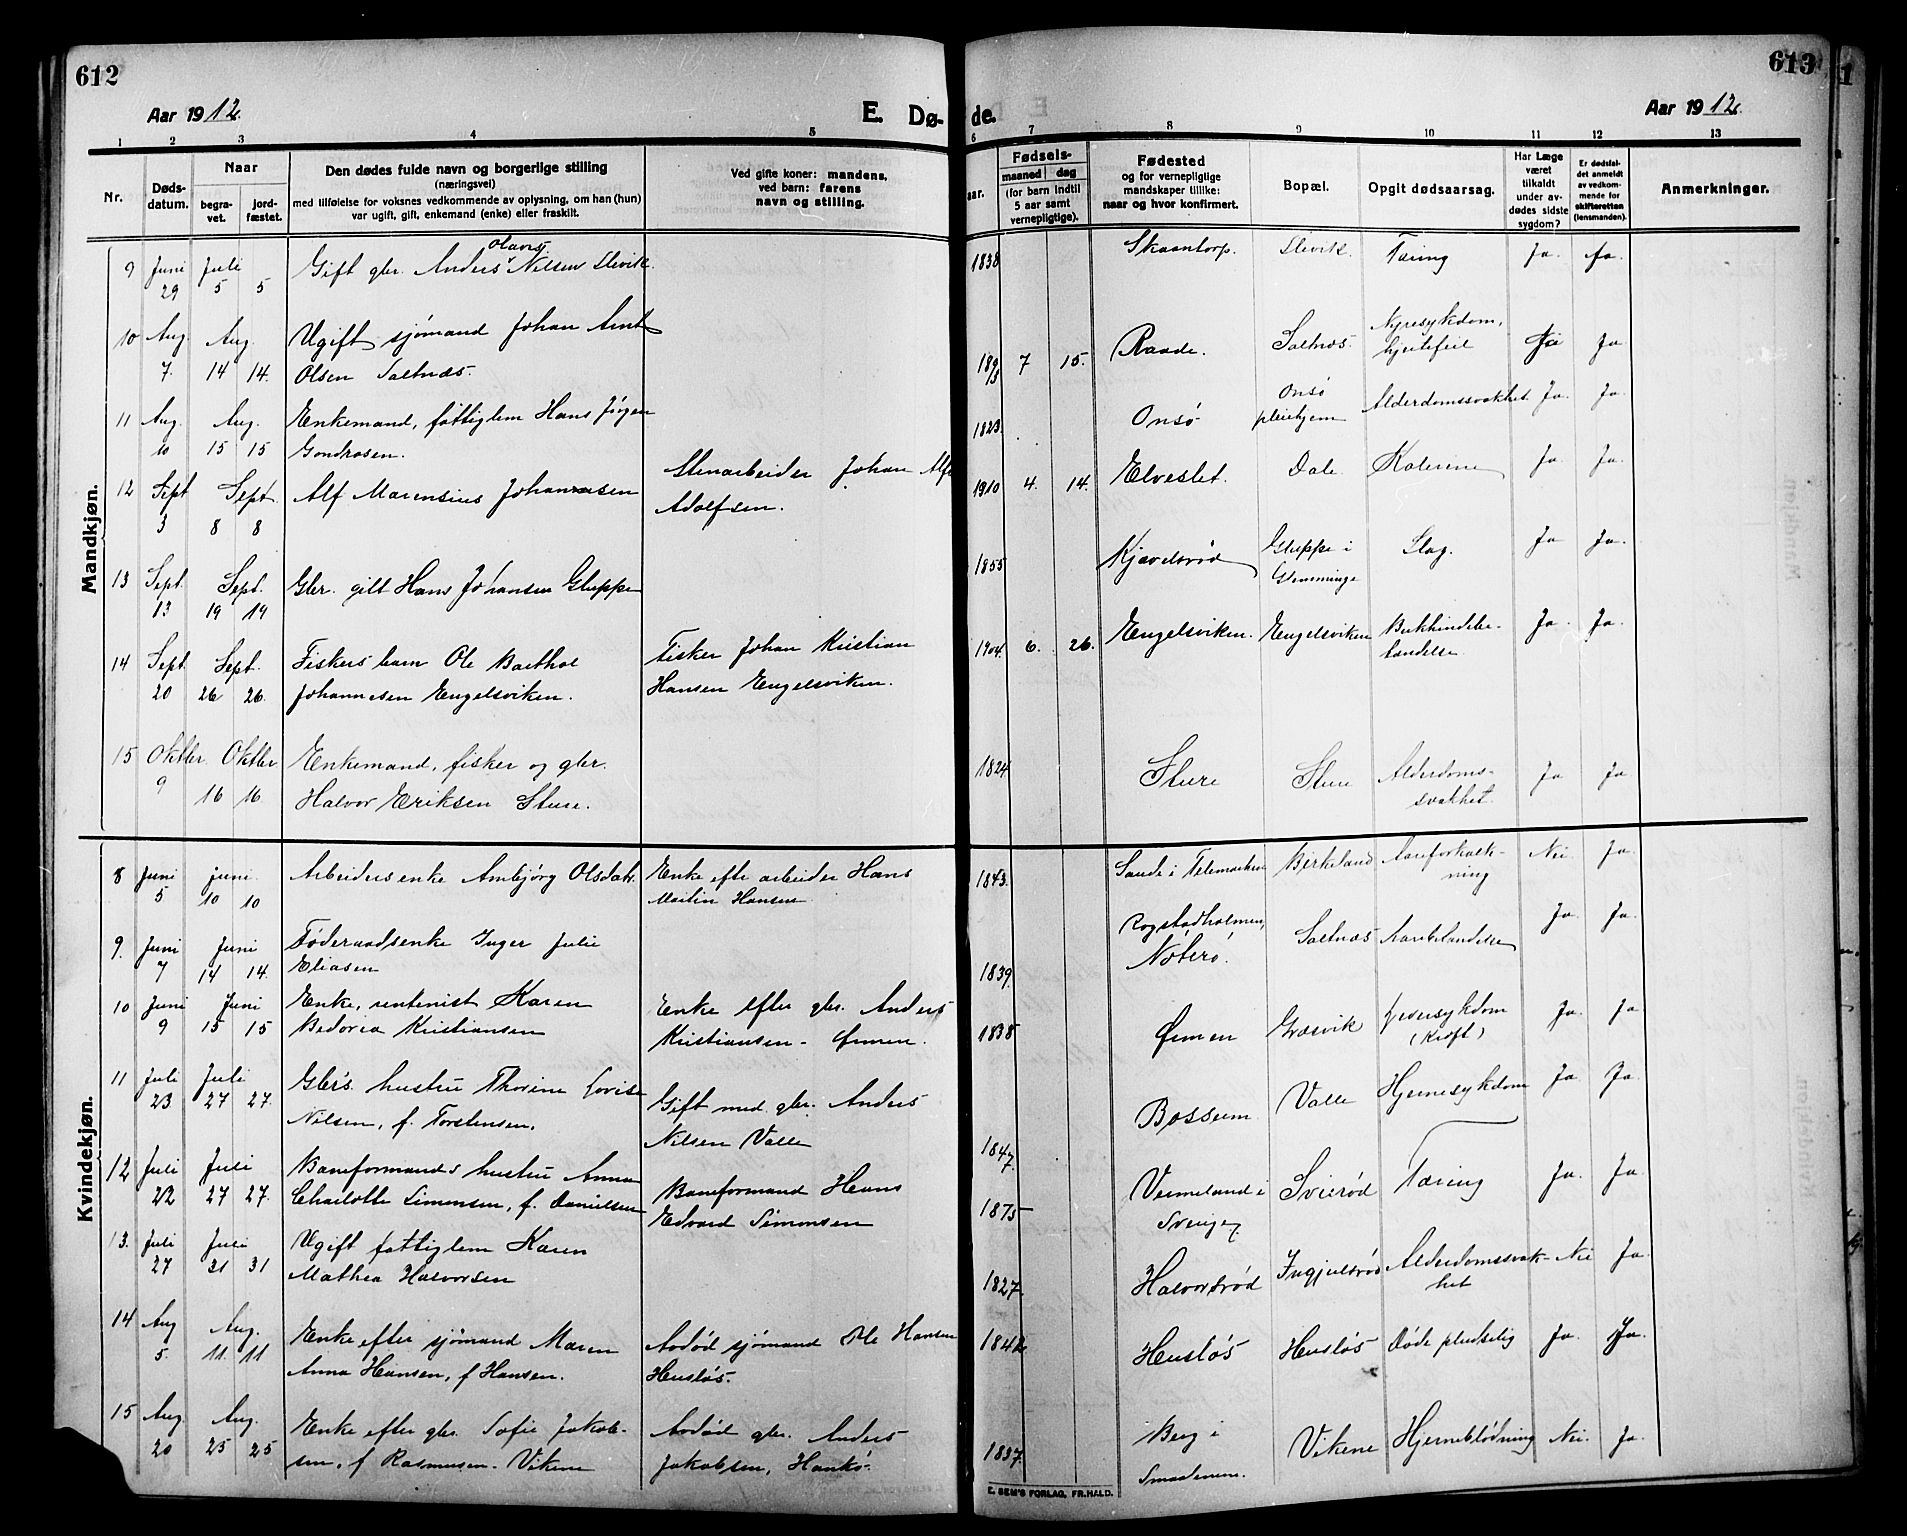 612
613
Aar 1912.
E. Dø-
de.
Aar 1912.
1 2 3 4 5 6 7 8 9 10 11 12 13
Nr.
Døds-
datum.
Naar
begra-
vet.
jord-
fæstet.
Den dødes fulde navn og borgerlige stilling
(næringsvei)
med tilføielse for voksnes vedkommende av oplysning, om han (hun)
var ugift, gift, enkemand (enke) eller fraskilt.
Ved gifte koner: mandens,
ved barn: farens
navn og stilling.
aar.
Fødsels-
maaned dag
(for barn indtil
5 aar samt
vernepligtige).
Fødested
og for vernepligtige
mandskaper tillike:
naar og hvor konfirmert.
Bopæl.
Opgit dødsaarsag.
Har Læge
været
tilkaldt
under av-
dødes sidste
sygdom?
Er dødsfal-
det anmeldt
av vedkom-
mende for
skifteretten
(lensmanden).
Anmerkninger.
Mandkjøn.
9 Juni 29 Juli 5 5 Gift gbr. Anders Olaus Nilsen Slevik. 1838 Skaantorp. Slevik. Tæring Ja. Ja.
10 Aug. 7. Aug. 14 14. Ugift sjømand Johan Arnt
Olsen Saltnæs. 1895 7 15. Raade. Saltnæs. Nyresykdom,
hjertefeil Ja
11 Aug. 10 Aug. 15 15 Enkemand, fattiglem Hans Jörgen
Gondrosen. 1823. Onsö Onsö
pleiehjem Alderdomssvakhet Ja. Ja.
12 Sept 3 Sept. 8 8 Alf Marensius Johannesen Stenarbeider Johan Alfr
Adolfsen. 1910 4. 14. Elveslet. Dale. Kolerine Ja. Ja.
13 Sept. 13 Sept. 19 19 Gbr. gift Hans Johansen Gluppe 1855 Kjævelsrød Gluppe i
Glemminge Slag. Ja Ja.
14 Sept. 20 Sept. 26 26. Fiskers barn Ole Barthol
Johannesen Engelsviken. Fisker Johan Kristian
Hansen Engelsviken. 1904. 6. 26. Engelsviken. Engelsviken Bukhindebe-
tændelse. Ja. Ja.
15 Oktbr. 9 Oktbr. 16 16 Enkemand, fisker og gbr.
Halvor Eriksen Sture. 1824 Sture Sture Alderdoms-
svakhet. Ja Ja
Kvindekjøn.
8 Juni 5 Juni 10 10 Arbeiders enke Ambjörg Olsdatr. Enke efter arbeider Hans
Martin Hansen 1843. Saude i Telemarken Birkeland Aareforkalk-
ning Nei Ja.
9. Juni 7 Juni 14 14. Föderaadsenke Inger Julie
Eliasen 1839. Rogstadholmen,
Nøterø. Saltnæs Aarebetændelse Ja. Ja.
10 Juni 9 Juni 15 15 Enke, rentenist Karen
Bedorea Kristiansen Enke efter gbr. Anders
Kristiansen - Ørmen. 1838 Ørmen Græsvik Leversykdom
(Kræft) Ja. Ja
11 Juli 23 Juli 27 27. Gbr's. hustru Thorine Lovise
Nilsen, f. Torstensen. Gift med gbr. Anders
Nilsen Valle 1847. Bossum Valle Hjernesykdom Ja Ja.
12 Juli 22 Juli 27 27. Baneformands hustru Anna
Charlotte Simonsen, f. Danielsen Baneformand Hans
Edvard Simonsen 1875 Vermeland i
Sverige Svierød Tæring Ja. Ja.
13. Juli 27 Juli 31 31 Ugift fattiglem Karen
Mathea Halvorsen 1827. Halvorsrød Ingjulsrød Alderdomssvak-
het Nei Ja.
14 Aug 5. Aug. 11. 11 Enke efter sjømand Maren
Anna Hansen, f Hansen. Avdød sjømand Ole Hansen
Husløs. 1842 Husløs Husløs Døde pludselig Ja. Ja.
15 Aug. 20 Aug. 25 25 Enke efter gbr. Sofie Jakob-
sen, f Rasmusen. Vikene Avdød gbr. Anders
Jakobsen, Hankø. 1837. Berg i
Smaalenene. Vikene Hjerneblödning Nei. Ja.
E. SEM'S FORLAG, FR.HALD.